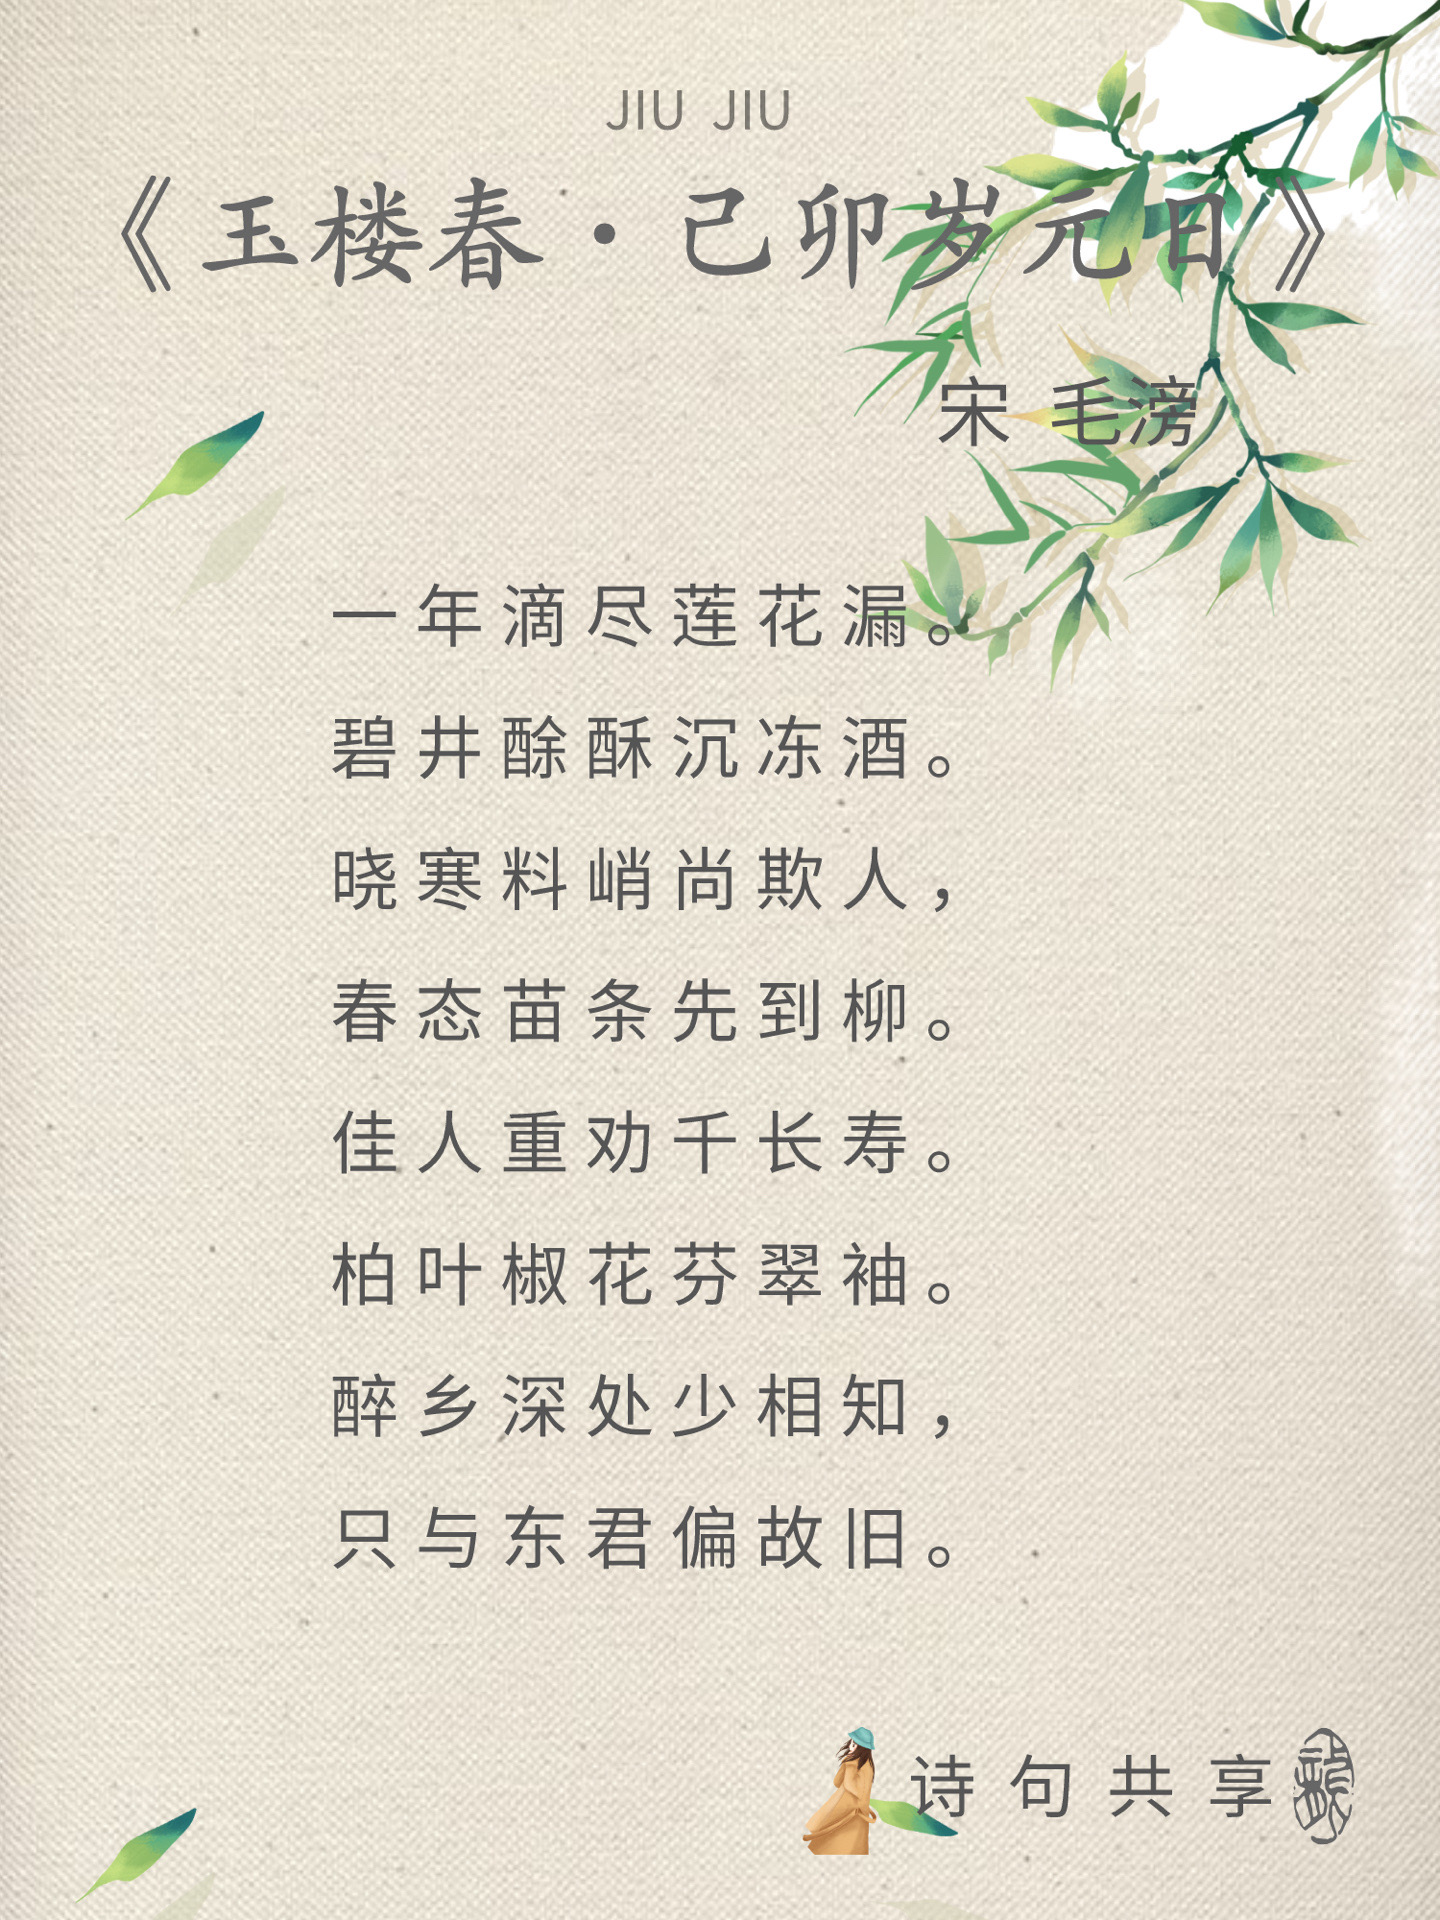 JIU JIU
《玉楼春·己卯岁元日》
宋 毛滂
一年滴尽莲花漏。
碧井酴酥沉冻酒。
晓寒料峭尚欺人，
春态苗条先到柳。
佳人重劝千长寿。
柏叶椒花芬翠袖。
醉乡深处少相知，
只与东君偏故旧。
诗句共享